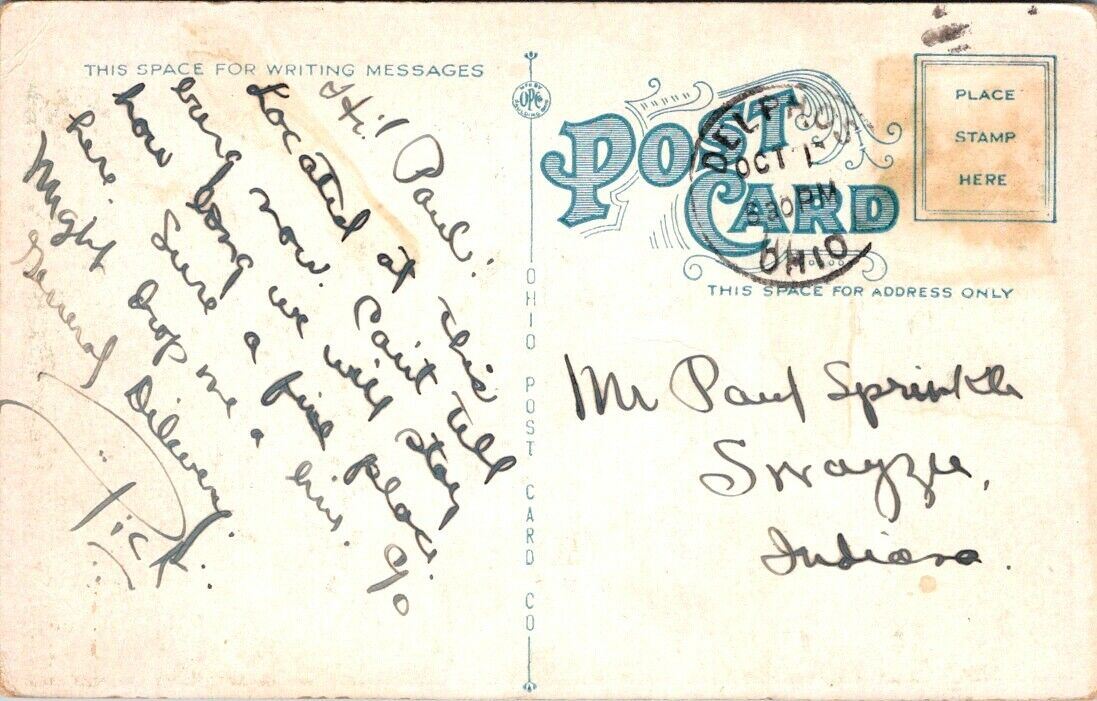 THIS SPACE FOR WRITING MESSAGES
Hi! Paul:
Located at this
burg now. Can't tell
how long we will stay
here. Sure a fine place.
Might drop me a line. c/o
General Delivery.
"Tick."
OPC
OHIO POST CARD CO
POST CARD
DELPHOS
OCT 1
PM
OHIO
PLACE
STAMP
HERE
THIS SPACE FOR ADDRESS ONLY
Mr Paul Sprinkle
Swayzee,
Indiana.